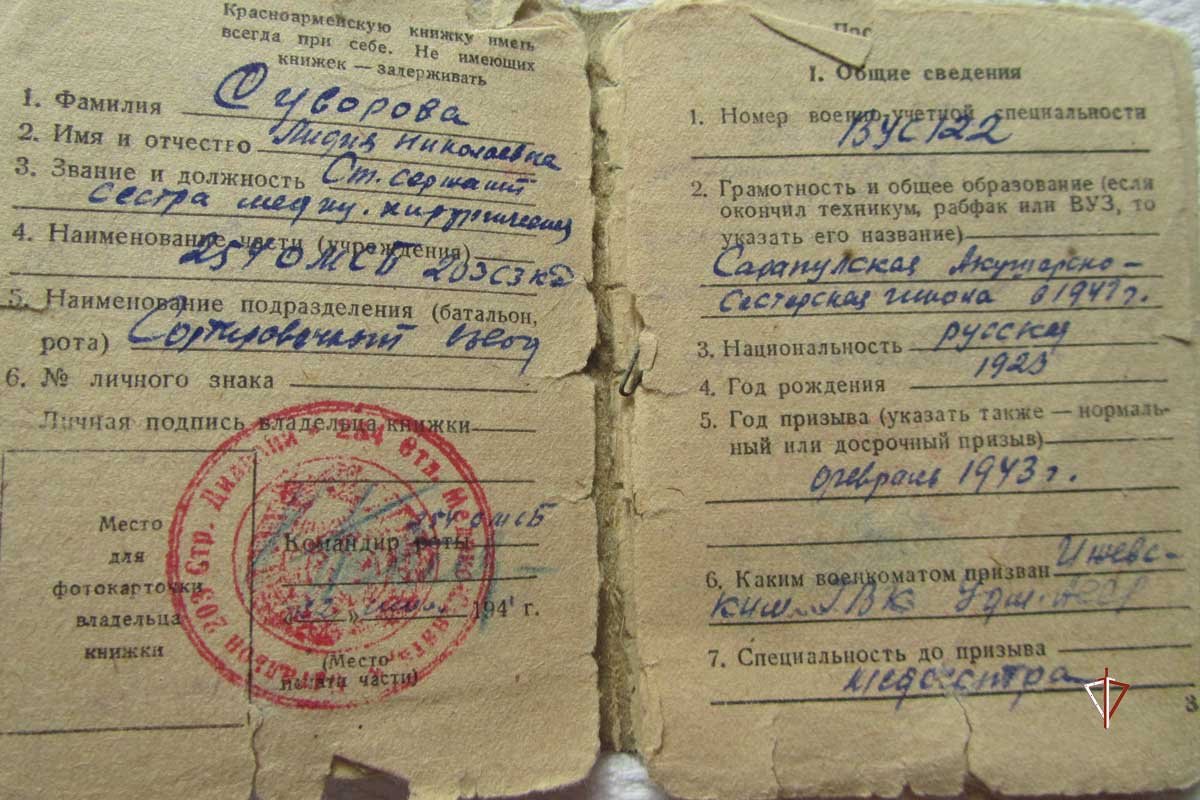 Красноармейскую книжку иметь
всегда при себе. Не имеющих
книжек — задерживать
1. Фамилия Суворова
2. Имя и отчество Лидия Николаевна
3. Звание и должность Ст. сержант
сестра медиц. хирургическая
4. Наименование части (учреждения)
254 ОМСБ 203СЗКД
5. Наименование подразделения (батальон,
рота) Сортировочный взвод
6. № личного знака
Личная подпись владельца книжки
Место
для
фотокарточки
владельца
книжки
254 ОМСБ
Командир роты
194 г.
(Место
печати части)
203 Стр. Дивизии * 254 Отд. Медико
I. Общие сведения
1. Номер военно-учетной специальности
ВУС 122
2. Грамотность и общее образование (если
окончил техникум, рабфак или ВУЗ, то
указать его название)
Сарапулская Акушерско-
Сестерская школа в 1941 г.
3. Национальность русская
4. Год рождения 1923
5. Год призыва (указать также — нормаль-
ный или досрочный призыв)
февраль 1943 г.
6. Каким военкоматом призван Ижевс-
ким ГВК Удм. АССР
7. Специальность до призыва
медсестра
3